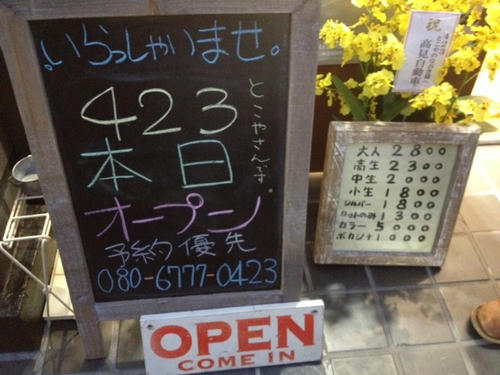 いらっしゃいませ。
423
とこやさんです。
本日
オープン
予約優先
080-6777-0423
OPEN
COME IN
祝
高見自動車
大人 2800
高生 2300
中生 2000
小生 1800
シルバー 1800
カットのみ 1300
カラー 5000
ボカシ+1000